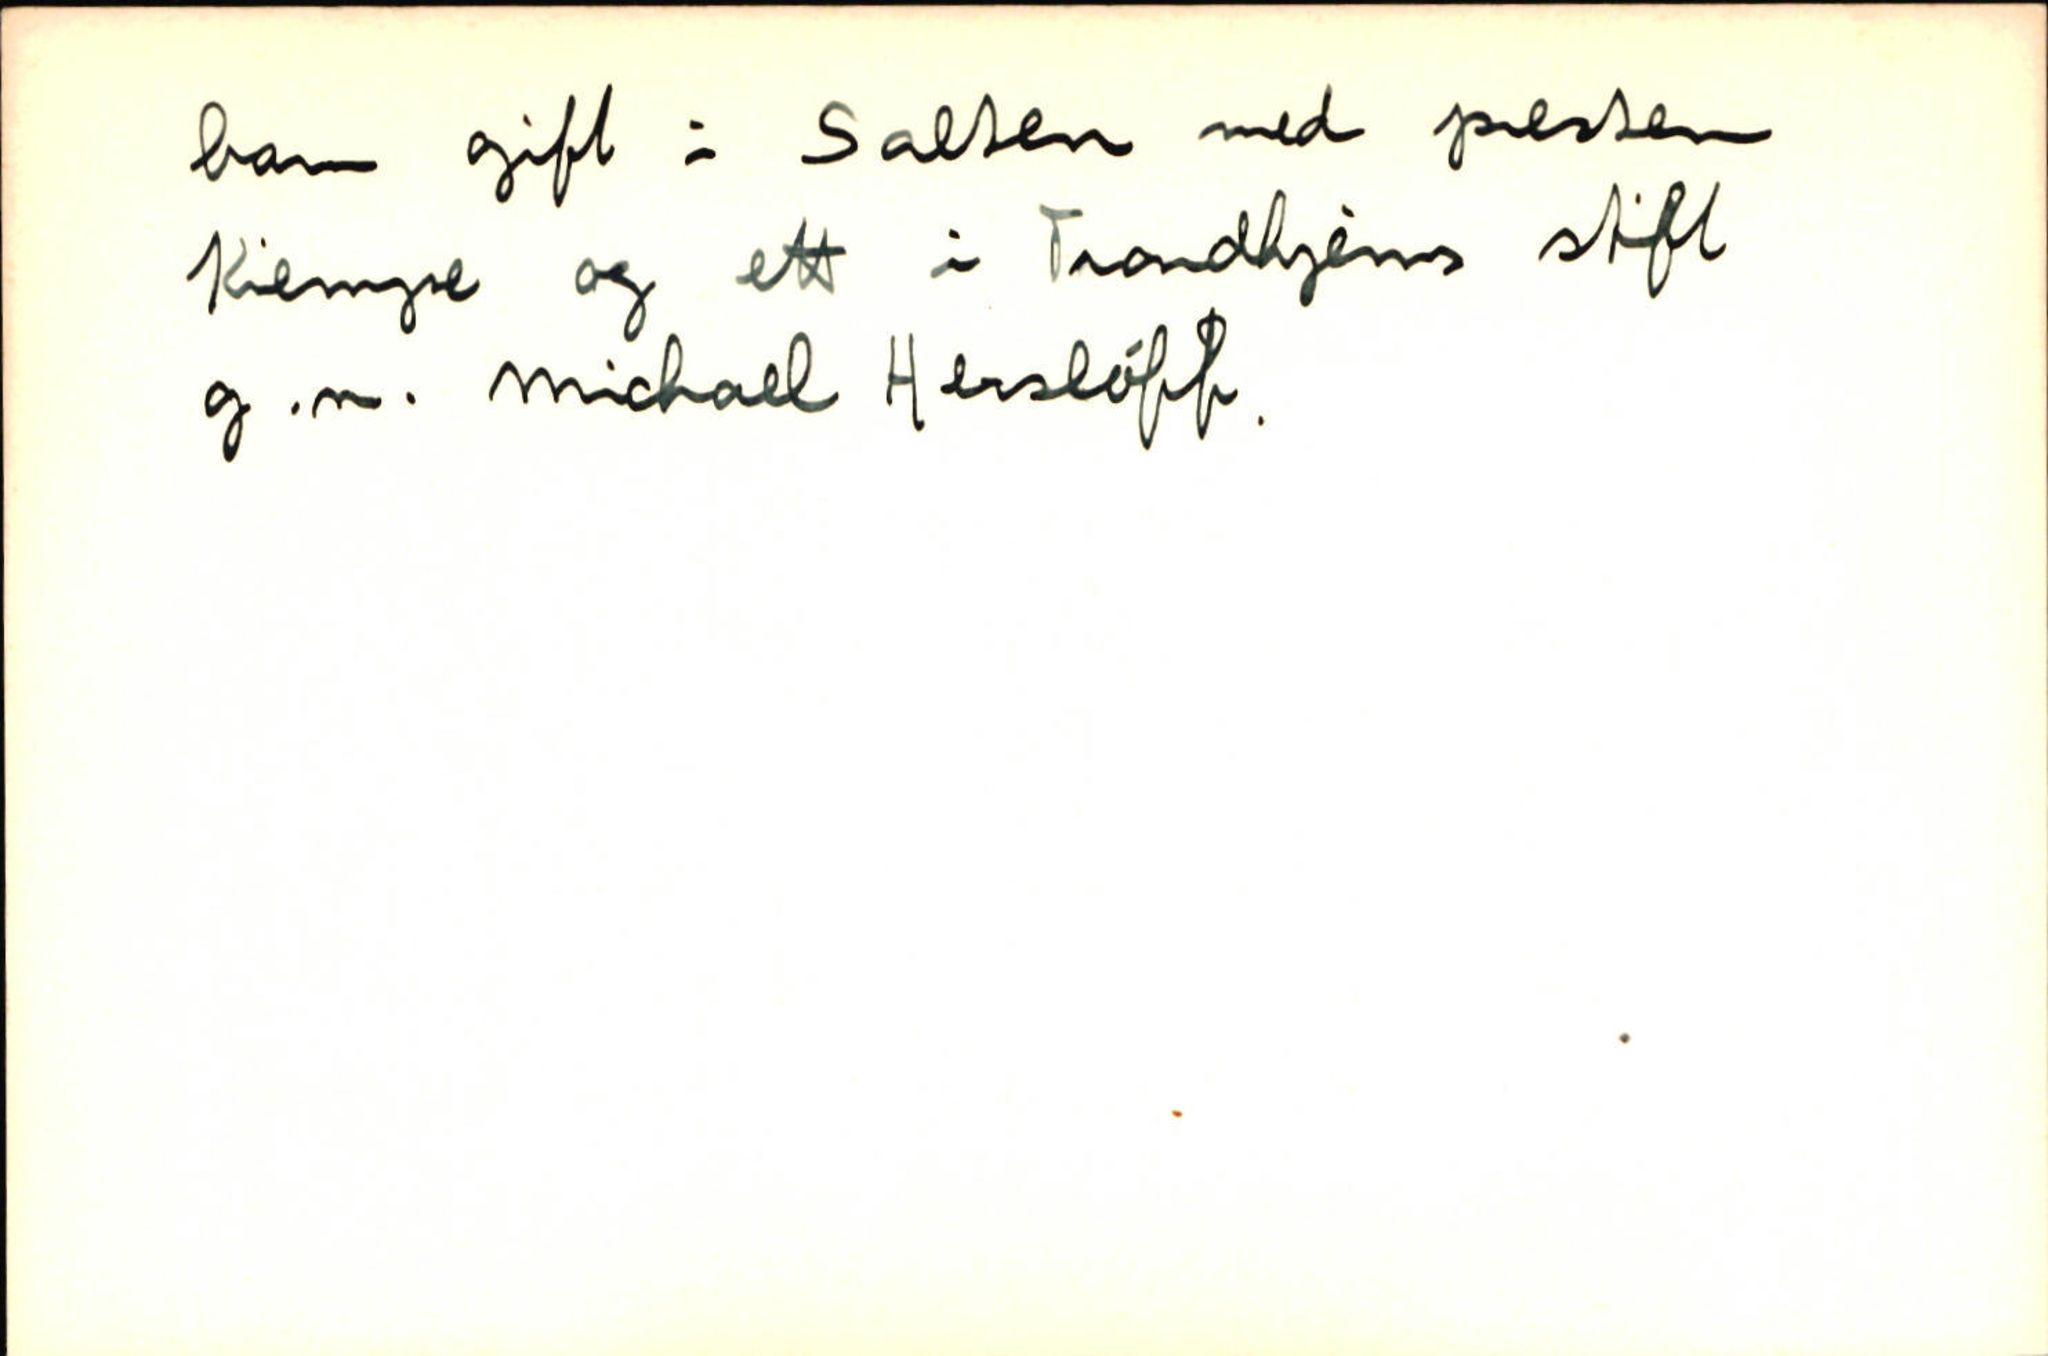 barn gift i Salten med presten
Kiempe og ett i Trondhjems stift
g.m. Michael Herslöff.